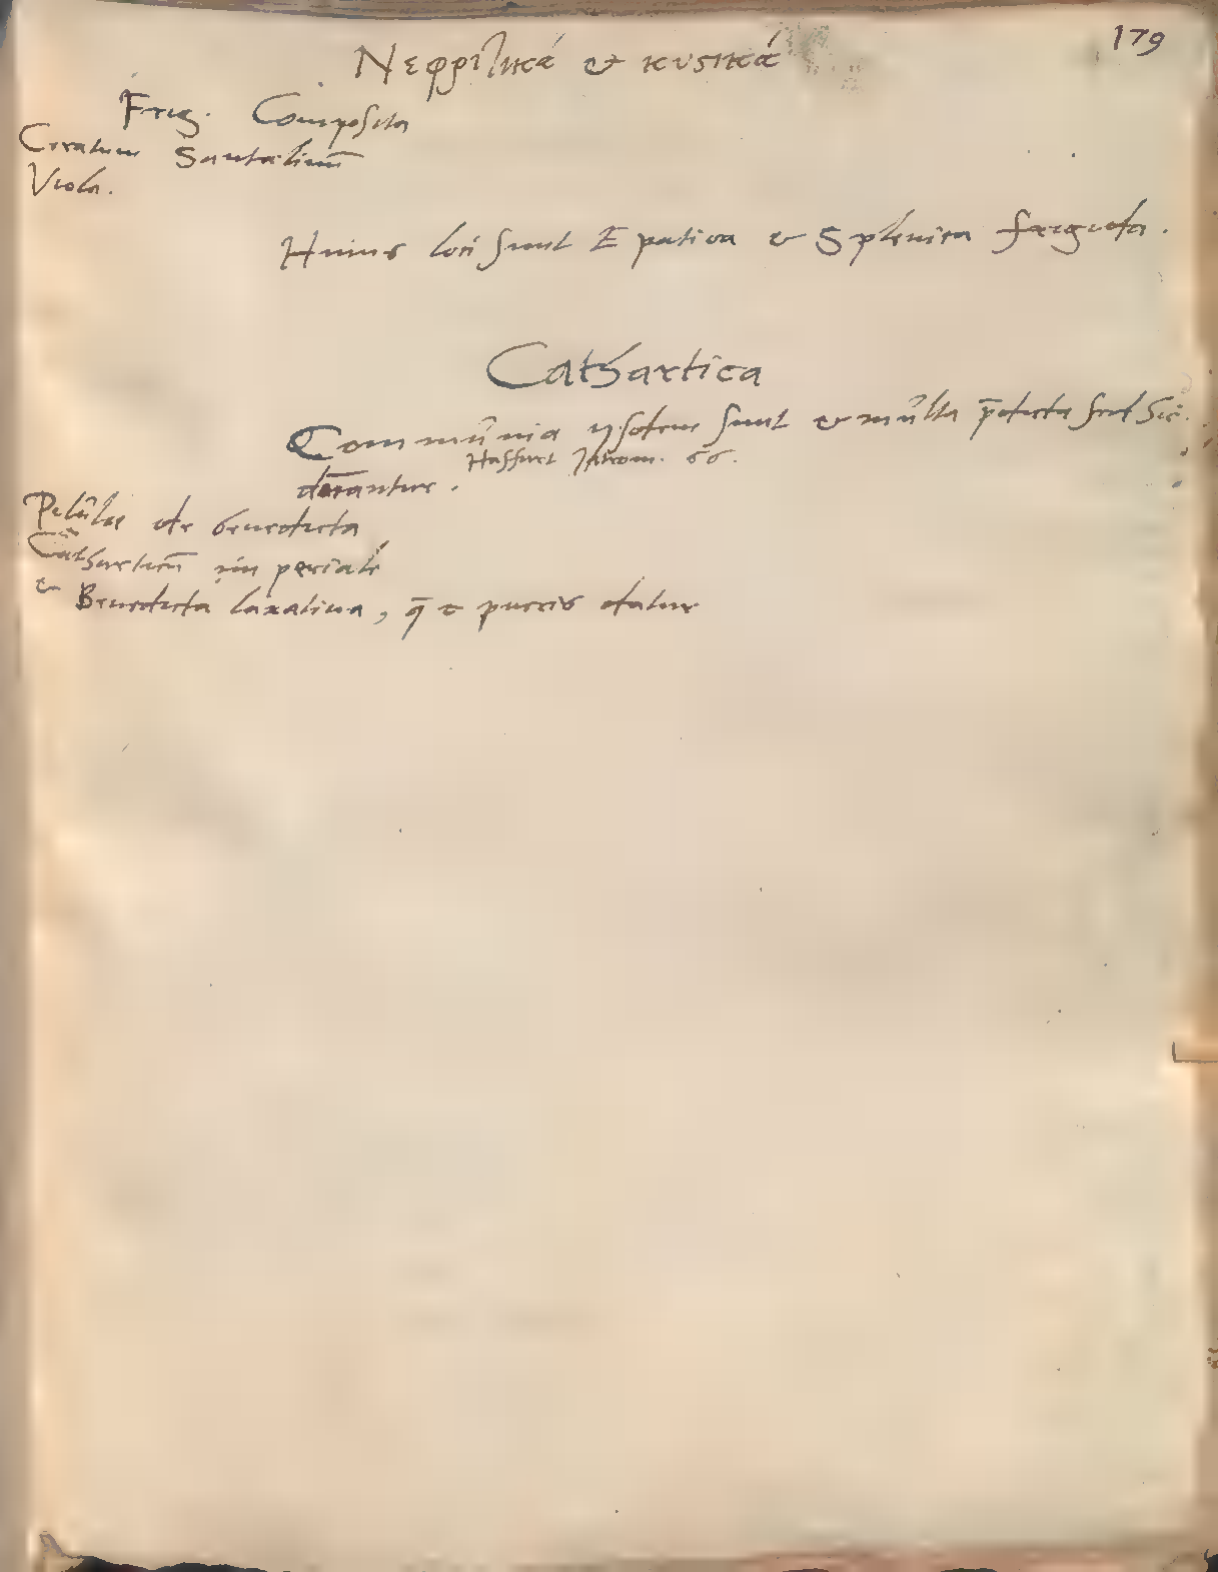 179
Νεφριτικά & κυστικά
Frig. Composita
Ceratum Santalinū
Viola.
Huius loci sunt Epatica & Splenica frigida.
Cathartica
Commūnia ijsdem sunt & mūlta p̄dicta sed
derantur.
Hasfurt 66.
Pilūlae de benedicta
Catharticū imperiale
& Benedicta laxatiua, q̄ & pueris datur